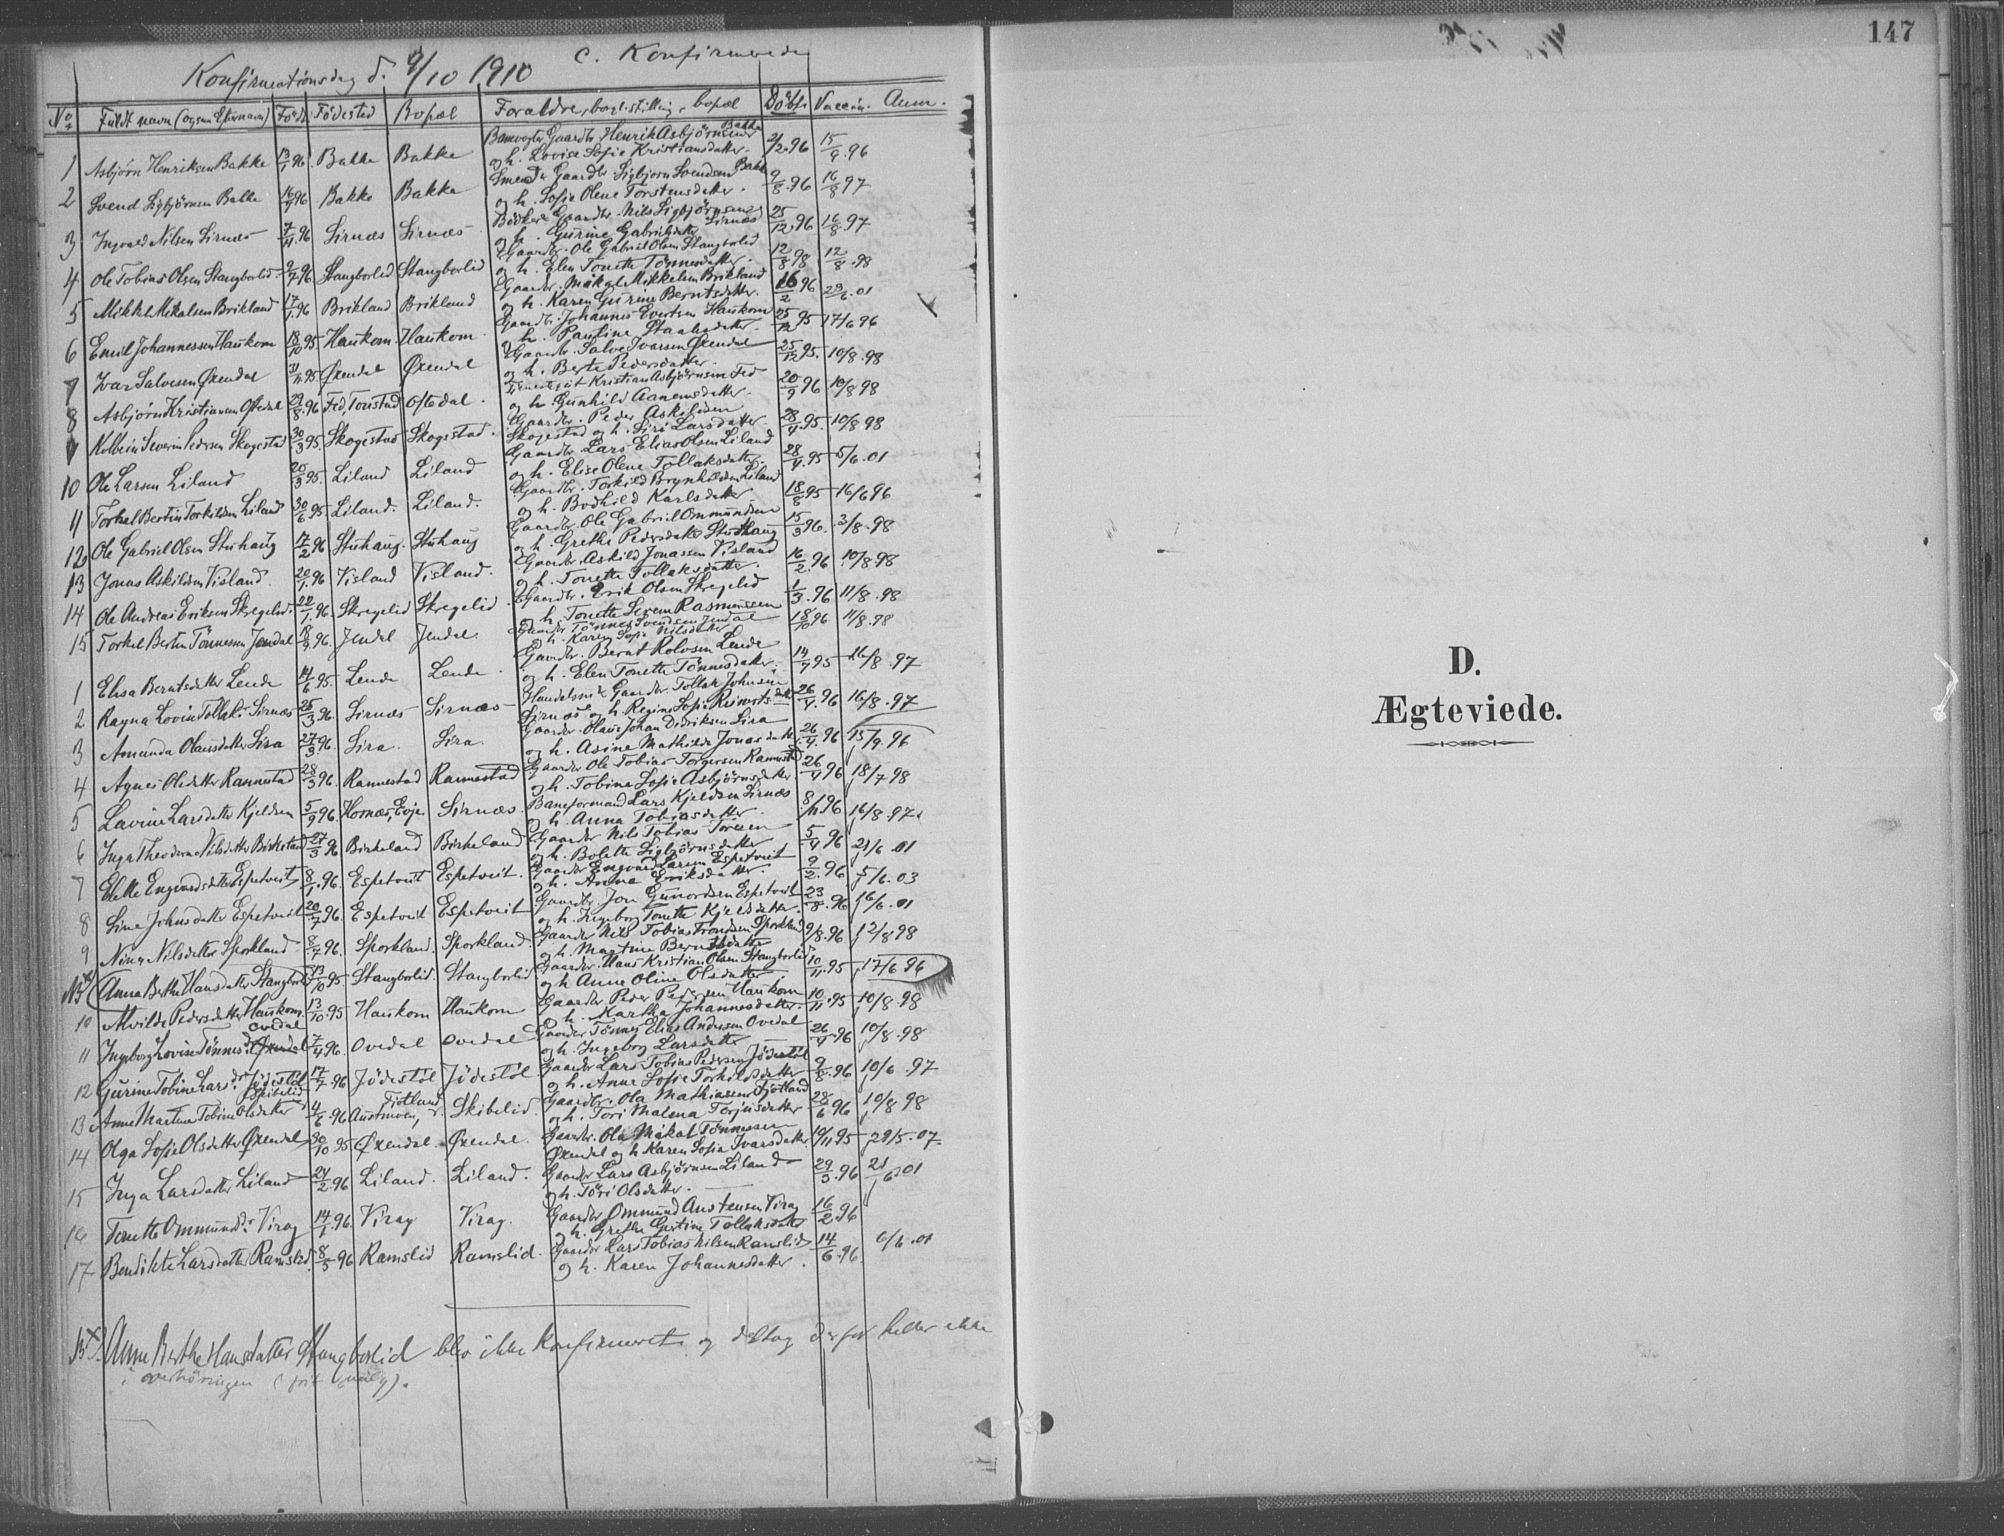 C. Konfirmerede
Konfirmationsdag d. 9/10 1910
No. Fuldt navn (ogsaa Efternavn) Født Fødested Bopæl Forældre, borgl. stilling, bopæl Døbt Vaccin. Anm.
1 Asbjørn Henriksen Bakke 13/1 96. Bakke Bakke Banevogter Gaardbr. Henrik Asbjørnsen Bakke 2/2 96 15/9 96
og h. Lovise Sofie Kristiansdatter.
2 Svend Sigbjørnsen Bakke 16/7 96 Bakke Bakke Smed & Gaardbr. Sigbjørn Svendsen Bakke 9/8 96 16/8 97
og h. Sofie Olene Torstensdatter.
3 Ingvald Nilsen Sirnæs 7/11 96 Sirnæs Sirnæs Bødker & Gaardbr. Nils Sigbjørnsen Sirnæs 25/12 96 16/8 97
og h. Gurine Gabrielsdatter
4 Ole Tobias Olsen Stangborlid 9/7 96 Stangborlid Stangborlid Gaardbr. Ole Gabriel Olsen Stangborlid 12/8 98 12/8 98
og h. Elen Tonette Tønnesdatter.
5 Mikkel Mikalsen Brikland 17/1 96 Brikland Brikland Gaardbr. Mikal Mikkelsen Brikland 16/2 96 29/6 01
og h. Karen Gurine Berntsdatter.
6 Emil Johannessen Haukom 18/10 95 Haukom Haukom Gaardbr. Johannes Evertsen Haukom 25/12 95 17/6 96
og h. Pauline Staalesdatter.
7 Ivar Salvesen Øxendal 3/11 95 Øxendal Øxendal Gaardbr. Salve Ivarsen Øxendal 25/12 95. 10/8 98
og h. Berte Pedersdatter.
8 Asbjørn Kristiansen Oftedal 29/8 96 Fed, Tonstad Oftedal. Kristian Asbjørnsen Fed 20/9 96 10/8 98
og h. Gunhild Aanensdatter.
9 Kolbein Severin Pedersen Skogestad 30/3 95. Skogestad Skogestad. Gaardbr. Peder Askildsen 28/4 95. 10/8 98
Skogestad og h. Siri Larsdatter
10 Ole Larsen Liland 20/3 95. Liland Liland Gaardbr. Lars Elias Olsen Liland 28/4 95 5/6 01
og h. Elise Olene Tollaksdatter.
11 Torkel Bertin Torkildsen Liland 30/6 95 Liland. Liland. Gaardbr. Torkild Brynhildsen Liland 18/8 95 16/6 96
og h. Bodhild Karlsdatter
12 Ole Gabriel Olsen Stuhaug 17/2 96 Stuhaug. Stuhaug Gaardbr. Ole Gabriel Ommundsen 15/3 96. 3/8 98
og h. Grethe Pedersdatter Stuhaug
13 Jonas Askildsen Visland 20/1 96 Visland Visland. Gaardbr. Askild Jonassen Visland 16/2 96 10/8 98
og h. Tonette Tollaksdatter.
14 Ole Andreas Eriksen Skregelid. 22/1 96. Skregelid Skregelid. Gaardbr. Erik Olsen Skregelid 1/3 96 11/8 98
og h. Tonette Severine Rasmussen
15 Torkel Bertin Tønnessen Jendal 18/9 96. Jendal Jendal. Gaardbr. Tønnes Svendsen Jendal 18/10 96 11/8 98
h. Karen Sofie Nilsdatter
1 Elisa Berntsdatter Lende 14/6 95. Lende Lende. Gaardbr. Bernt Rolvsen Lende 14/7 95 16/8 97
og h. Elen Tonette Tønnesdatter.
2 Ragna Lovin Tollaksd. Sirnæs 25/3 96. Sirnæs Sirnæs Handelsm. & Gaardbr. Tollak Johnsen 26/4 96 16/8 97
Sirnæs og h. Regine Sofie Reinertsdatter
3 Amanda Olausdatter Sira 27/3 96. Sira. Sira. Gaardbr. Olaus Johan Didriksen Sira 26/4 96 15/9 96
og h. Asine Mathilde Jonasdatter
4 Agnes Olsdatter Rannestad 28/3 96. Rannestad Rannestad Gaardbr. Ole Tobias Torgersen Rannestad 26/4 96 18/7 98
og h. Tobine Sofie Asbjørnsdatter
5 Lavine Larsdatter Kjeldsen 5/9 96. Hornæs, Evje Sirnæs. Baneformand Lars Kjeldsen Sirnæs 8/11 96 16/8 97
og h. Anna Tobiasdatter.
6 Inga Theodora Nilsdatter Birkeland 27/3 96 Birkeland Birkeland Gaardbr. Nils Tobias Torsen 5/4 96 21/6 01
og h. Bolette Sigbjørnsdatter
7 Elette Engvardsdatter Espetveit 8/1 96. Espetveit Espetveit. Gaardbr. Engvard Larsen Espetveit 9/2 96 5/6 03
og h. Anna Eriksdatter.
8 Sine Johnsdatter Espetveit 20/7 96. Espetveit Espetveit Gaardbr. Jon Gunordsen Espetveit 23/8 96 16/6 01
og h. Ingeborg Tonette Kjeldsdatter.
9 Nina Nilsdatter Sporkland 8/7 96. Sporkland. Sporkland. Gaardbr. Nils Tobias Trondsen Sporkland 9/8 96 12/8 98
og h. Martine Berntsdatter
NB× (Anna Berthe Hansdatter Stangborlid 13/10 95 Stangborlid. Stangborlid Gaardbr. Hans Kristian Olsen Stangborlid 10/11 95 17/6 96
og h. Anne Oline Olsdatter.
10 Alvilde Pedersdatter Haukom. 13/10 95 Haukom Haukom Gaardbr. Peder Pedersen Haukom 10/11 95 10/8 98
h. Martha Johannesdatter.
11 Ingeborg Lovise Tønnesd. Øxendal Ovedal 7/4 96. Ovedal Ovedal Gaardbr. Tønnes Elias Andersen Ovedal 26/4 96 10/8 98
og h. Ingeborg Larsdatter
12 Gurine Tobine Larsdr. Jødestøl 17/7 96 Jødestøl Jødestøl. Gaardbr. Lars Tobias Pedersen Jødestøl 9/8 96 10/6 97
og h. Anne Sofie Torkildsdatter
13 Anne Martine Tobine Olsdatter Skibelid 4/6 96 Austmoen, Fjotland Skibelid. Gaardbr. Ola Mathiassen Fjotland 28/6 96 10/8 98
og h. Tori Malena Torjusdatter
14 Olga Sofie Olsdatter Øxendal 30/10 95 Øxendal. Øxendal. Gaardbr. Ola Mikal Tønnessen 10/11 95 29/5 07.
Øxendal og h. Karen Sofie Ivarsdatter
15 Inga Larsdatter Liland 24/2 96 Liland. Liland. Gaardbr. Lars Asbjørnsen Liland 29/3 96 21/6 01
og h. Tori Olsdatter.
16 Tonette Ommundsdr. Virag 14/1 96. Virag Virag. Gaardbr. Ommund Austensen Virag 16/2 96
og h. Grethe Gurine Tollaksdatter
17 Bendikte Larsdatter Ramslid. 8/5 96 Ramslid Ramslid. Gaardbr. Lars Tobias Nilsen Ramslid 14/6 96. 6/6 01
og h. Karen Johannesdatter.
NB×. Anna Berthe Hansdatter Stangborlid blev ikke konfirmeret og deltog derfor heller ikke
i overhøringen
147
D.
Ægteviede.